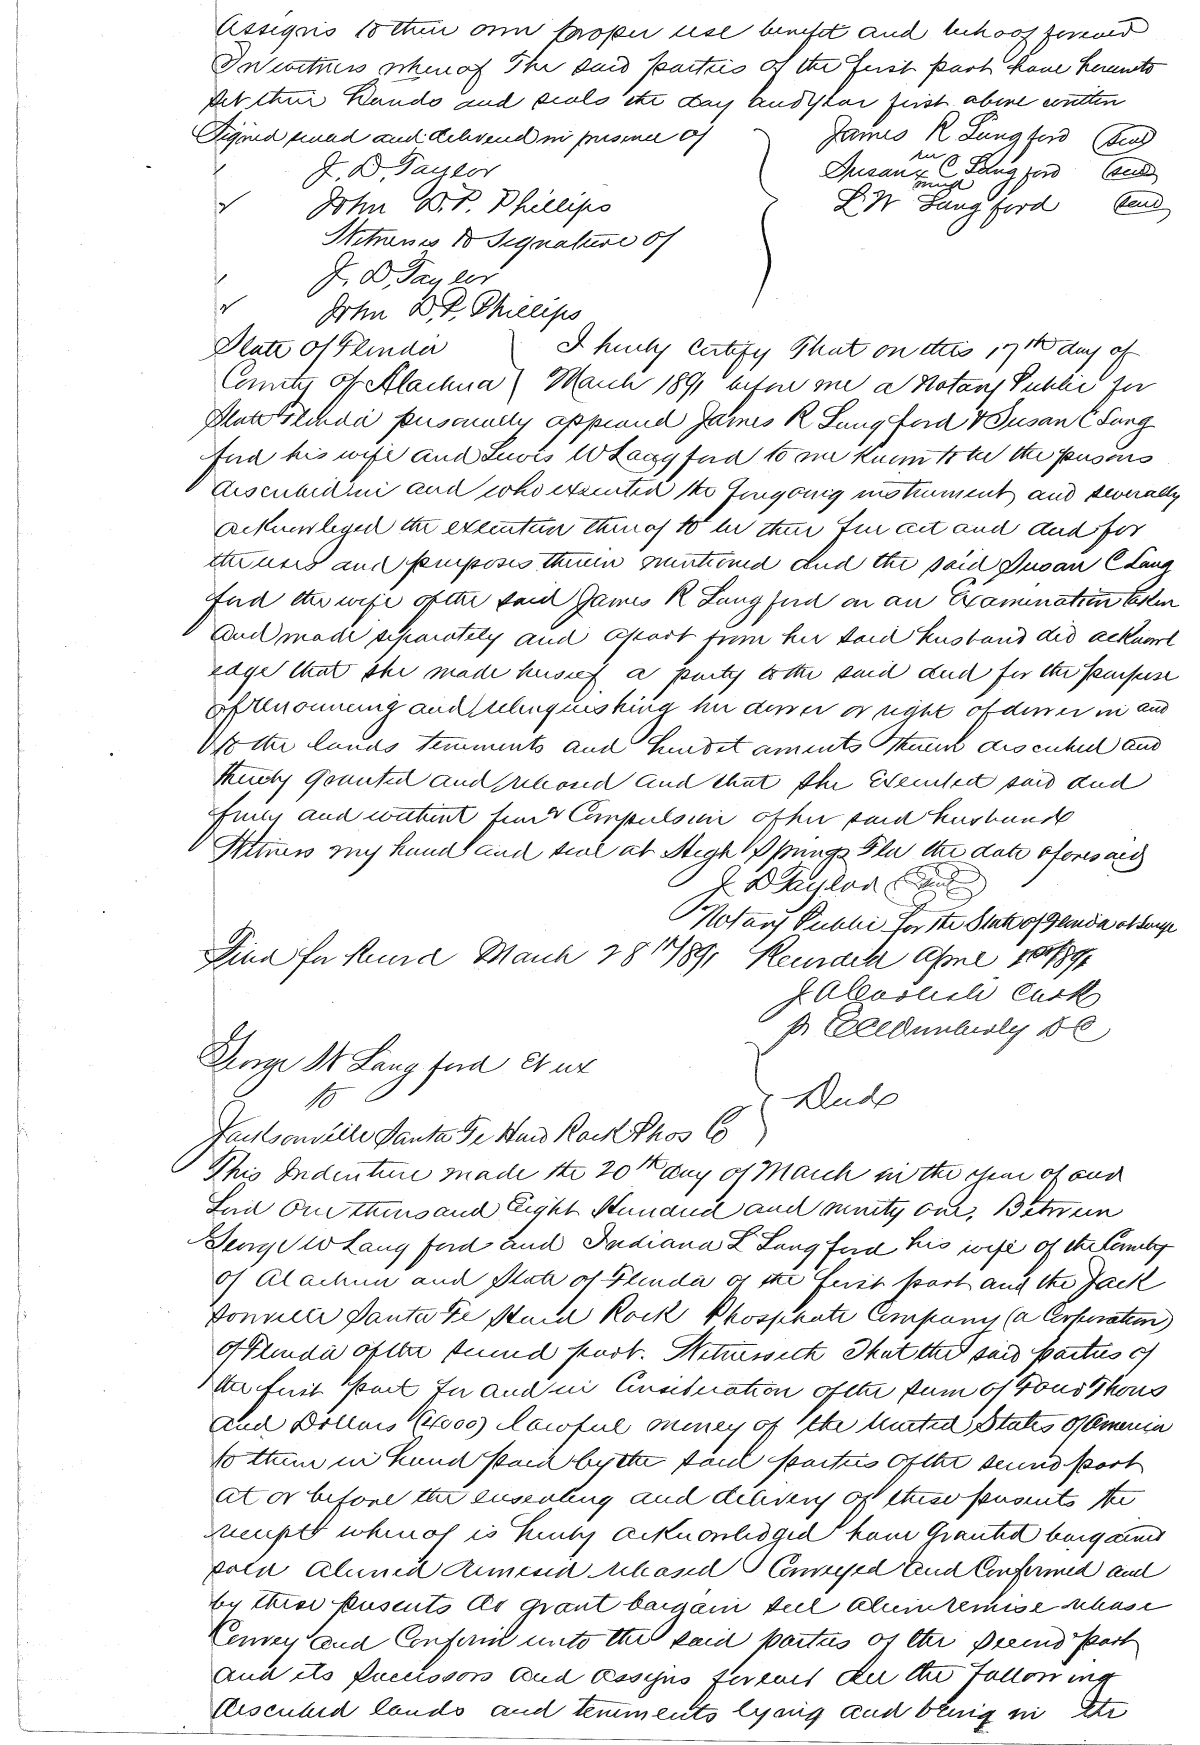 Assigns to their own proper use benefit and behoof forever
In witness whereof The said parties of the first part have hereunto
set their hands and seals the day and year first above written
Signed sealed and delivered in presence of
James R Langford (seal)
J. D. Taylor
her
Susan x C Langford (seal)
mark
John D. P. Phillips
L W Langford (seal)
Witness to Signature of
J. D. Taylor
John D. P. Phillips
State of Florida
I hereby Certify That on this 17th day of
County of Alachua
March 1891 before me a Notary Public for
State Florida personally appeared James R Langford & Susan C Lang
ford his wife and Lewis W Langford to me known to be the persons
described in and who executed the foregoing instrument and severally
acknowleged the execution thereof to be their free act and deed for
the uses and purposes therein mentioned and the said Susan C Lang
ford the wife of the said James R Langford on an Examination taken
and made separately and apart from her said husband did acknowl
edge that she made herself a party to the said deed for the purpose
of renouncing and relinquishing her dower or right of dower in and
to the lands tenements and heredetaments therein described and
thereby granted and released and that she Executed said deed
freely and without fear or Compulsion of her said husband
Witness my hand and seal at High Springs Fla the date aforesaid
J D Taylor (seal)
Notary Public for the State of Florida at Large
Filed for Record March 28th 1891 Recorded April 1st 1891
J A Carlisle Clerk
pr D C
George W Langford et ux
to
Deed
Jacksonville Santa Fe Hard Rock Phos Co
This Indenture made the 20th day of March in the year of our
Lord One thousand Eight Hundred and ninety one, Between
George W Langford and Indiana L Langford his wife of the County
of Alachua and State of Florida of the first part and the Jack
sonville Santa Fe Hard Rock Phosphate Company (a Corporation)
of Florida of the second part. Witnesseth That the said parties of
the first part for and in Consideration of the sum of Four Thous
and Dollars (4000) lawful money of the United States of America
to them in hand paid by the said parties of the second part
at or before the ensealing and delivery of these presents the
receipt whereof is hereby acknowledged have Granted bargained
sold aliened remised released Conveyed and Confirmed and
by these presents do grant bargain sell alien remise release
Convey and Confirm unto the said parties of the second part
and its successors and assigns forever all the following
described lands and tenements lying and being in the